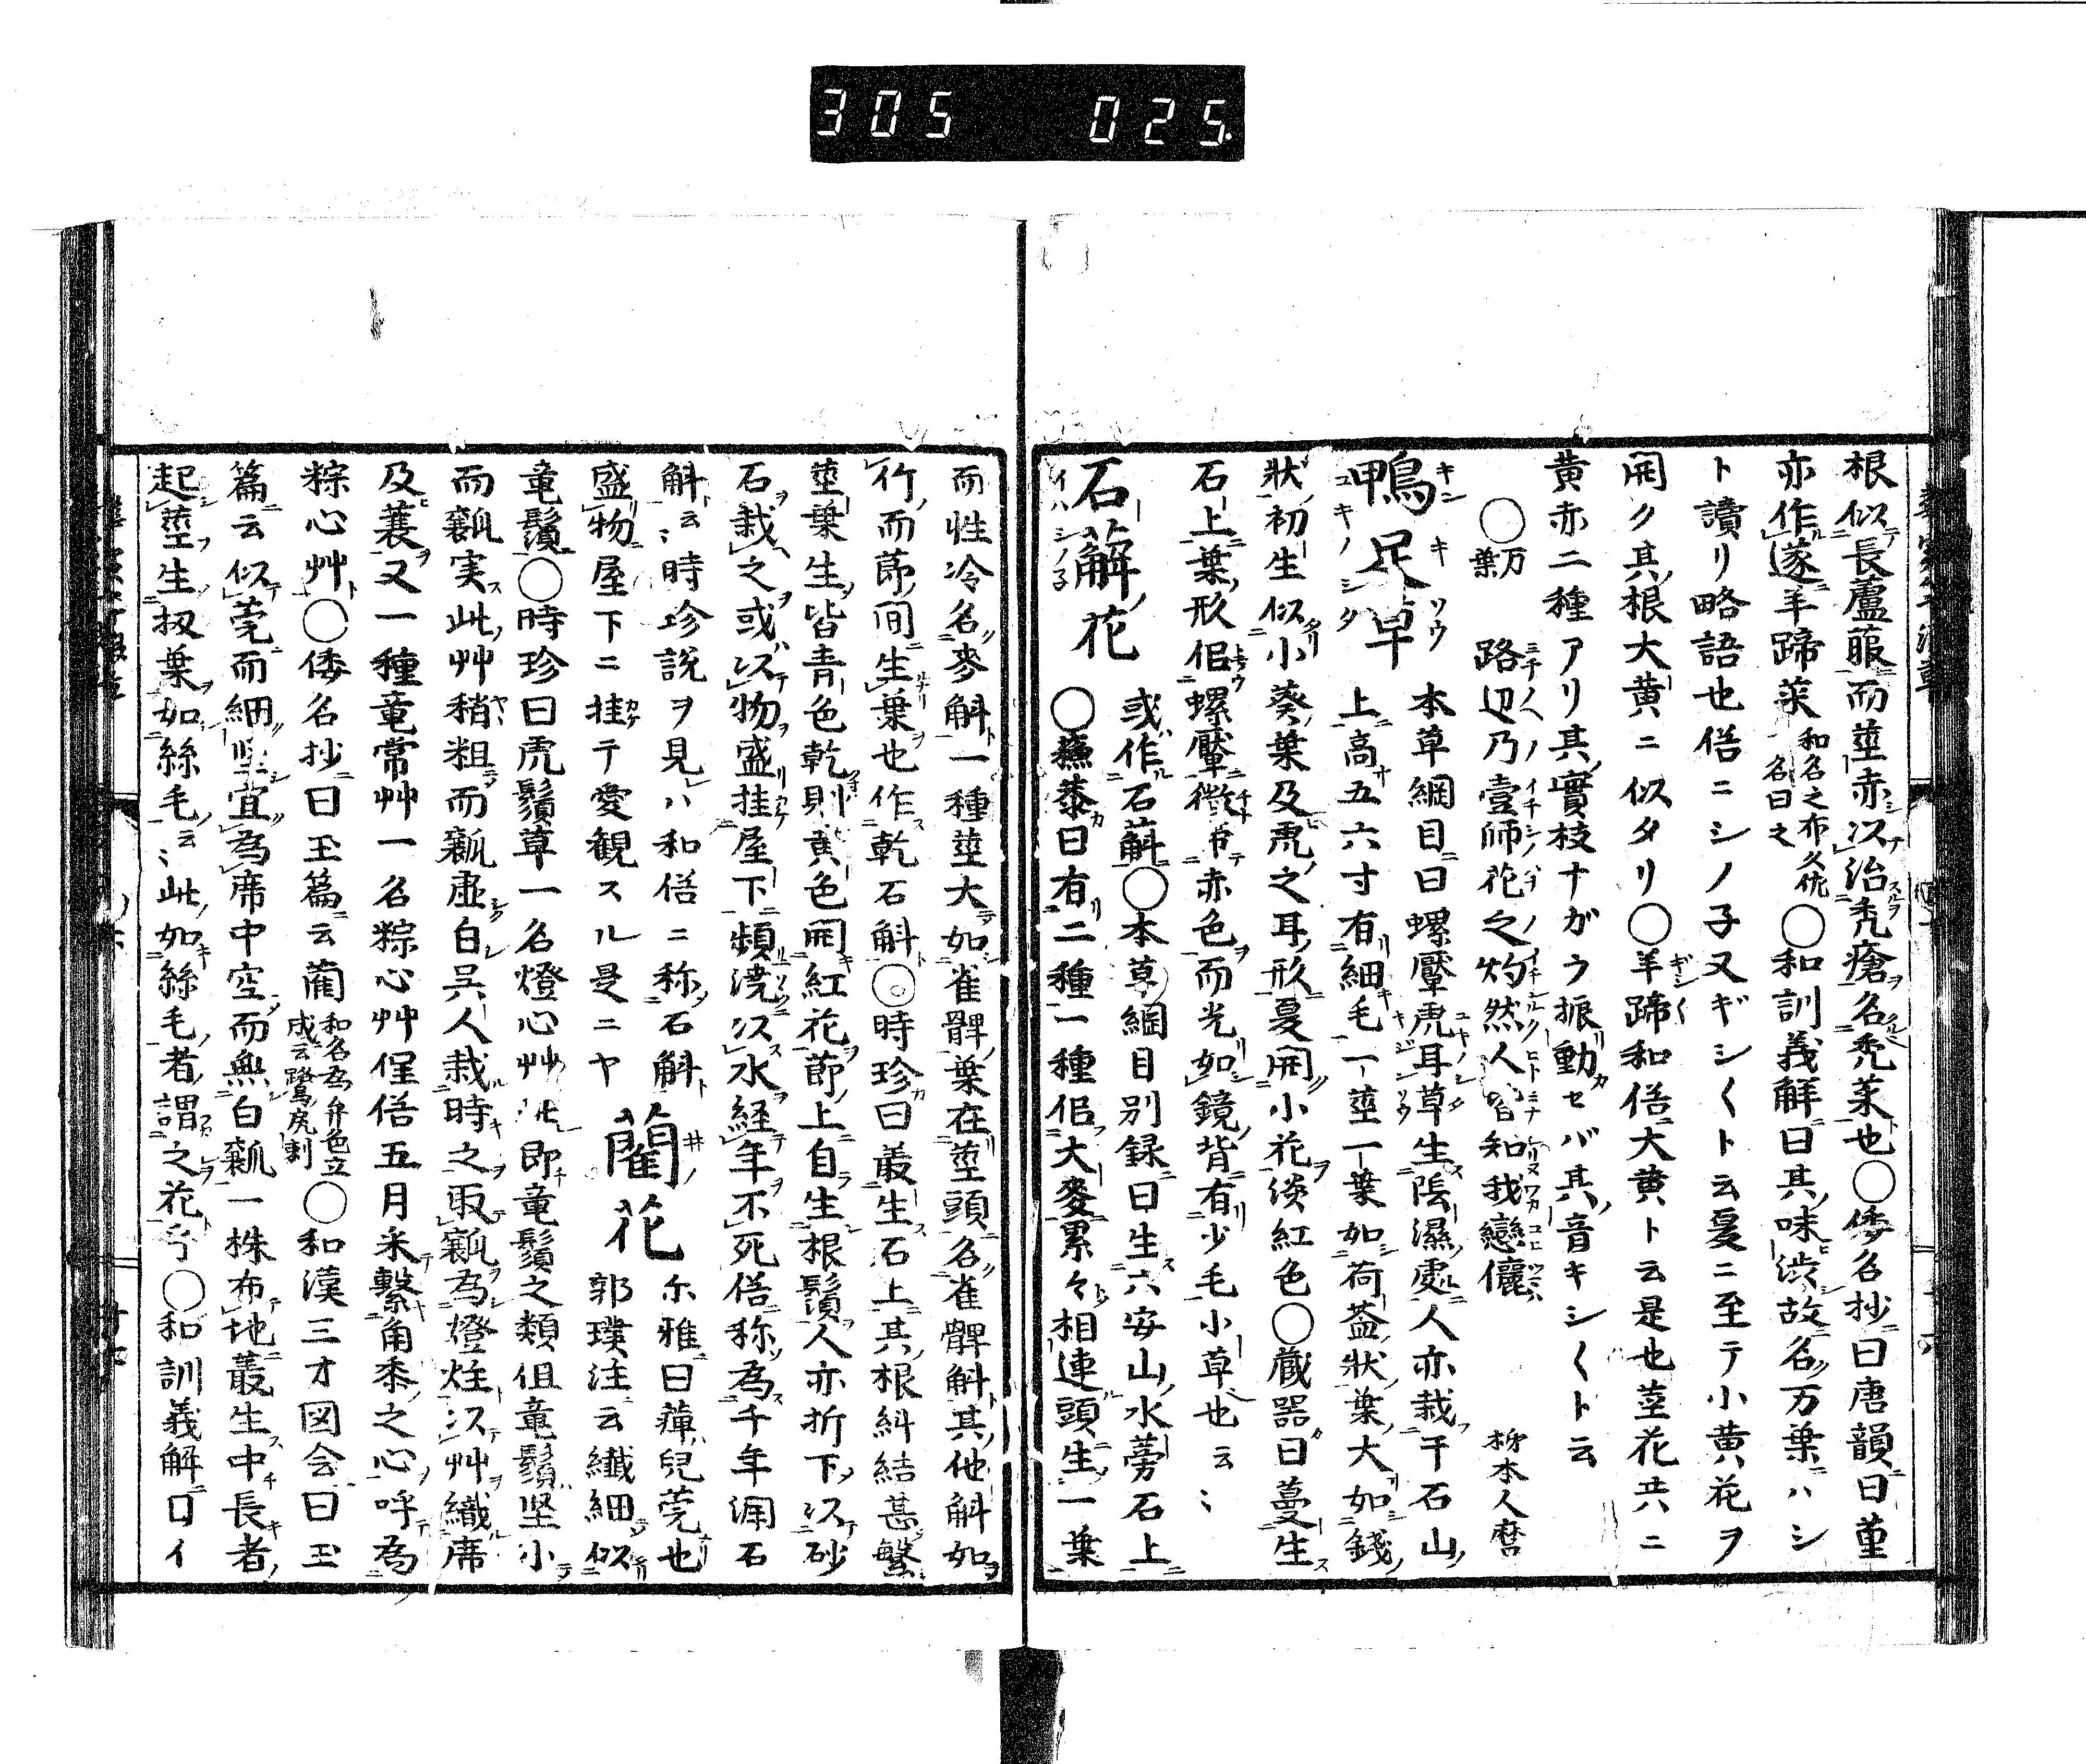 305 025
根似長蘆菔而莖赤以治禿瘡名禿菜也○倭名抄曰唐韻曰菫
亦作蓫羊蹄菜 和名之布久佐 一名曰之 ○和訓義解曰其味渋故名万葉ハシ
ト讀リ略語也俗ニシノ子又ギシ〱ト云夏ニ至テ小黄花ヲ
開ク其根大黄ニ似タリ○羊蹄和俗大黄ト云是也莖花共ニ
黄赤二種アリ其實枝ナガラ振動セバ其音キシ〱ト云
○万葉 路辺乃壹師花之灼然人皆知我戀儷 柿本人麿
鴨足草 本草綱目曰螺黶虎耳草生陰濕處人亦栽于石山
上高五六寸有細毛一莖一葉如荷蓋狀葉大如錢
狀初生似小葵葉及虎之耳形夏開小花淡紅色○蔵器曰蔓生
石上葉形似螺黶微帯赤色而光如鏡背有少毛小草也云〻
石蘚花 或作石斛○本草綱目別録曰生六安山水旁石上
○蘓恭曰有二種一種似大麥累々相連頭生一葉
而性冷名麥斛一種莖大如雀髀葉在莖頭名雀髀斛其他斛如
竹而節間生葉也作乾石斛○時珍曰叢生石上其根糾結甚繁
莖葉生皆青色乾則黄色開紅花節上自生根鬚人亦折下以砂
石栽之或以物盛挂屋下頻澆以水経年不死俗称為千年潤石
斛云〻時珍説ヲ見ハ和俗ニ称石斛
盛物屋下ニ挂テ愛観スル是ニヤ
藺花 尓雅曰莞兒莞也
郭璞注云纖細似
竜鬚○時珍曰虎鬚草一名燈心艸此即竜鬚之類但竜鬚堅小
而瓤実此艸稍粗而瓤虚白呉人栽時之取瓤為燈炷以艸織席
及蓑又一種竜常艸一名粽心艸俗五月采繋角黍之心呼為
粽心艸○倭名抄曰玉篇云藺 和名為 弁色立成云鷺尻刺 ○和漢三才図会曰玉
篇云似莞而細堅宜為席中空而無白瓤一株布地叢生中長者
起莖生扱葉如絲毛云〻此如絲毛者謂之花乎○和訓義解曰イ